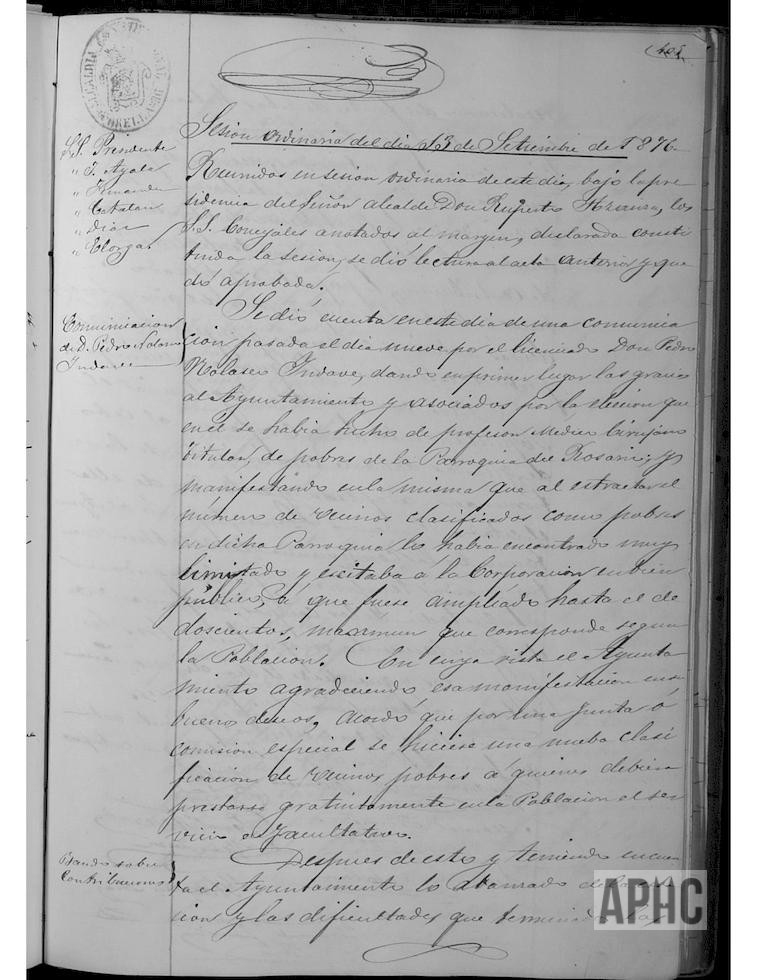 405
ALCALDIA CONSTITUCIONAL DE
Sesion ordinaria del dia 13 de Setiembre de 1876.
S.S. Presidente
" T. Ayala
" Fernandez
" Catalan
" Diaz
" Elorza
Reunidos en sesion ordinaria de este dia, bajo la pre
sidencia del Señor alcalde Don Ruperto los
S.S. Concejales anotados al margen, declarada consti
tuida la sesion, se dió lectura al acta anterior y que
dó aprobada.
Comunicacion
de D. Pedro Nolasco
Indave
Se dió cuenta en este dia de una comunica
cion pasada el dia nueve por el licenciado Don Pedro
Nolasco Indave, dando en primer lugar las gracias
al Ayuntamiento y asociados por la eleccion que
en el se habia hecho de profesor Medico Cirujano
titular, de pobres de la Parroquia del Rosario; y
manifestando en la misma que al estractar el
número de vecinos clasificados como pobres
en dicha Parroquia lo habia encontrado muy
limitado y escitaba á la Corporacion en bien
público, á que fuese ampliado hasta el de
doscientos, maximun que corresponde segun
la Poblacion. En cuya vista el Ayunta
miento agradeciendo esa manifestacion en su
buenos deseos, acordó que por una Junta ó
comision especial se hiciese una nueba clasi
ficacion de vecinos pobres á quienes debiera
prestarse gratuitamente en la Poblacion el ser
vicio facultativo.
Bando sobre
contribuciones
Despues de esto y teniendo en cuen
ta el Ayuntamiento lo abanzado de la esta
cion y las dificultades que terminadas las
APHC